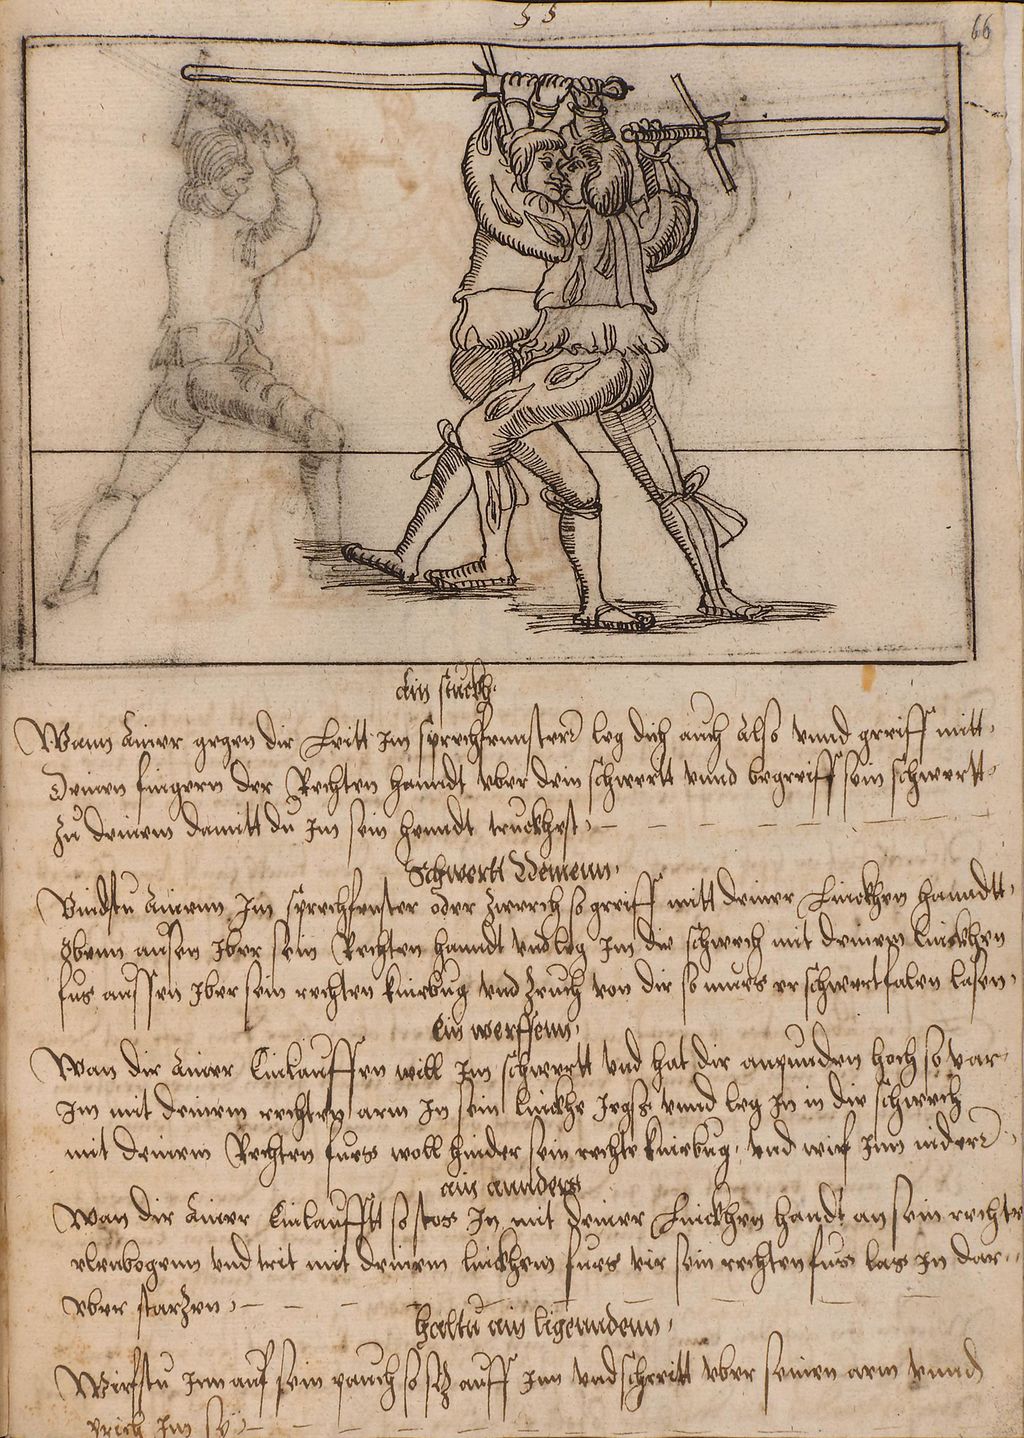 55
66
ain stuckh.
Wann ainer gegen dir Leitt Im sprechfennster leg dich auch also vnnd greiff mitt
deinen fingern der Rechten hanndt vber dein schwertt vnnd begreiff sein schwertt
Zu deinem damitt du Im sein henndt truckhest
Schwertt Nemenn.
Bindstu ainenn Im sprechfenster oder Zwerch so greiff mitt deiner Linckhen hanndtt
Obenn ausen Iber sein Rechten handt vnd leg Im die schwech mit deinem linckhen
fus aussen Iber sein rechten kniebug vnd Zeuch von dir so mues er schwert falen lasen
Ein werffenn.
Wan dir ainer Einlauffen will Im schwertt vnd hat dir anpunden hoch so var
Im mit deinem rechten arm In sein linckhe Iegß vnnd leg In in die schwech
mit deinem Rechten fues woll hinder sein rechte kniebug vnd wirf Inn nider
ain annders
Wan dir ainer Einlaufftt so stos In mit deiner Linckhen handt an sein rechte
elenbogenn vnd trit mit deinem linckhem fues vir sein rechten fus las In dar
vber starZen
Haltu ain ligenndenn.
Wirfstu Inn auf sein pauch so siZ auff Inn vnd schreitt vber seinen arm vnnd
prich Im